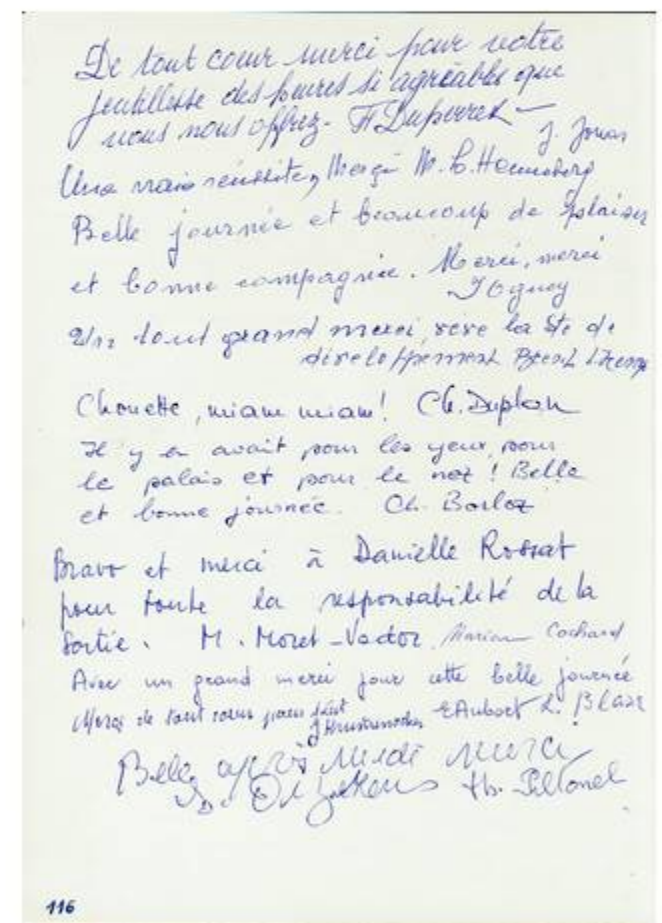 De tout cœur merci pour votre
gentillesse des heures si agréables que
vous nous offrez. Duperrex
J. Jonas
Une vraie réussite, Merçi M. C. Henneberg
Belle journée et beaucoup de plaisir
et bonne compagnie. Merci, merci
Un tout grand merci, vive la Sté de
développement
Chouette, miam miam! Ch. Duplan
Il y en avait pour les yeux, pour
le palais et pour le nez! Belle
et bonne journée. Ch. Borloz
Bravo et merci à Danielle Rossat
pour toute la responsabilité de la
Sortie. M. Moret-Vadoz Cochard
Avec un grand merci pour cette belle journée
Merci de tout cœur pour tout E Aubort L. Blanc
Belle après Midi Merci
116